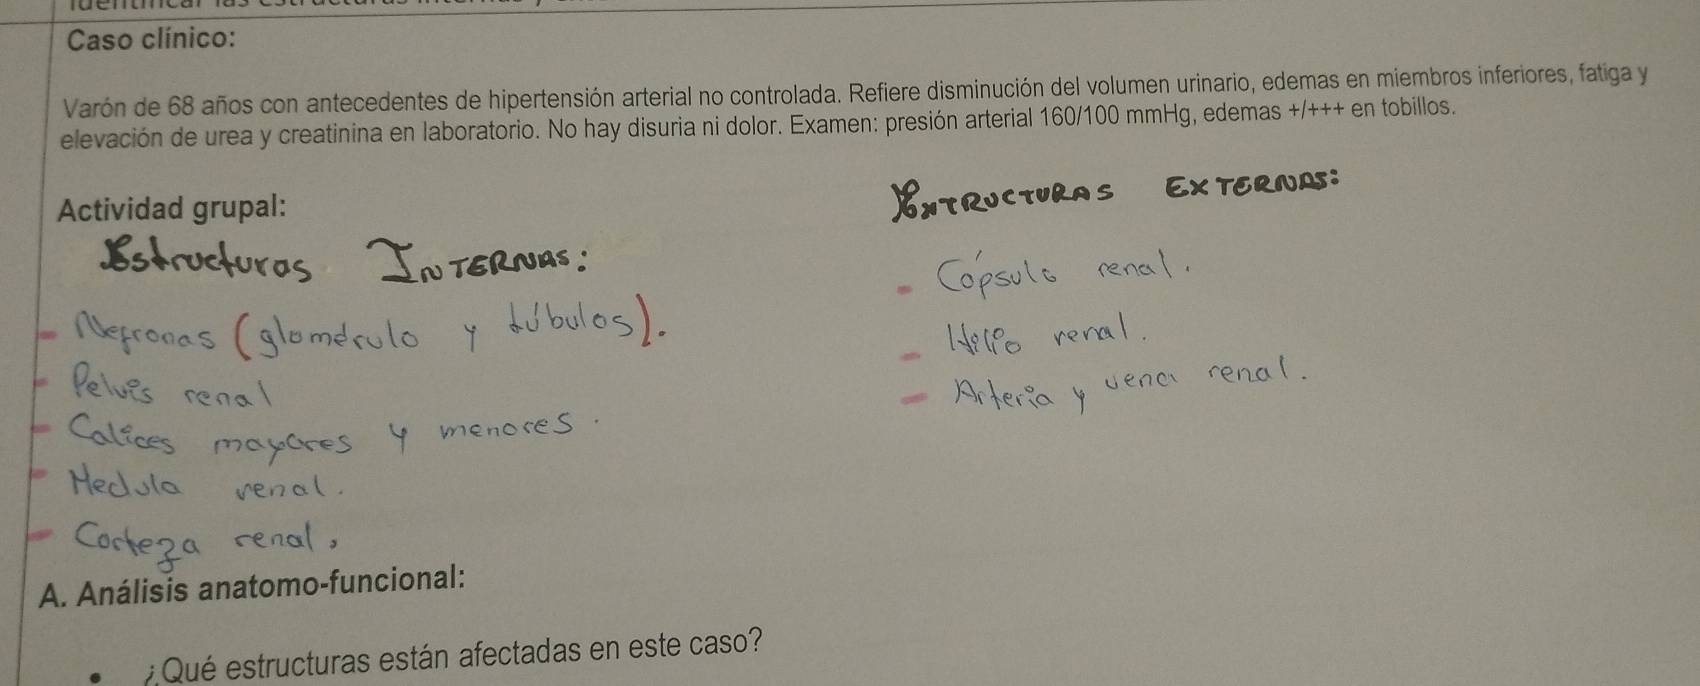 Caso clínico:
Varón de 68 años con antecedentes de hipertensión arterial no controlada. Refiere disminución del volumen urinario, edemas en miembros inferiores, fatiga y
elevación de urea y creatinina en laboratorio. No hay disuria ni dolor. Examen: presión arterial 160/100 mmHg, edemas +/+++ en tobillos.
Actividad grupal:
Estructuras INTERNAS:
- Nefronas (glomérulo y túbulos).
- Pelvis renal
- Calices mayores y menores.
- Medula renal.
- Corteza renal,
EXTRUCTURAS EXTERNAS:
- Cápsula renal.
- Hilio renal.
- Arteria y vena renal.
A. Análisis anatomo-funcional:
• ¿Qué estructuras están afectadas en este caso?